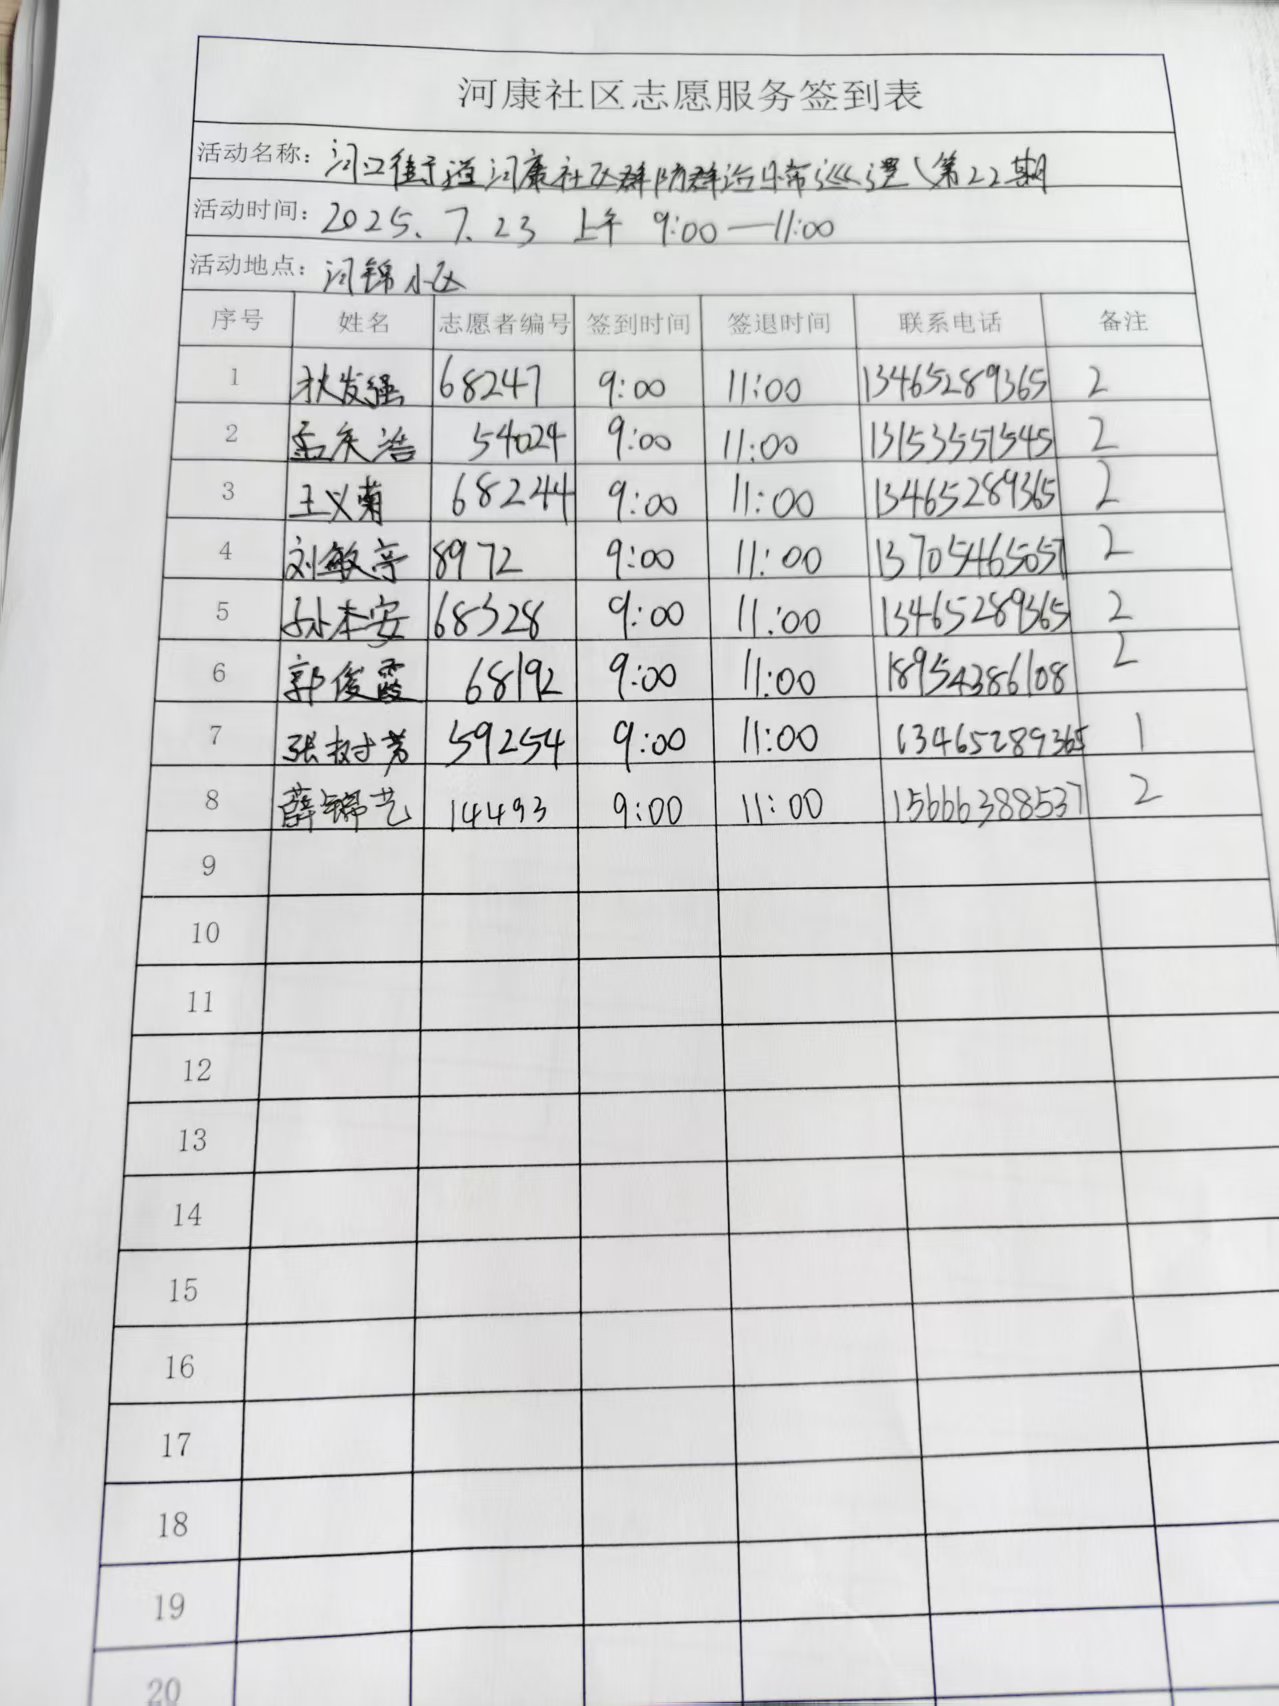 河康社区志愿服务签到表
活动名称：河口街道河康社区群防群治日常巡逻（第22期
活动时间：2025.7.23 上午 9:00—11:00
活动地点：河锦小区
序号 姓名 志愿者编号 签到时间 签退时间 联系电话 备注
1 狄发强 68247 9:00 11:00 13465289365 2
2 孟庆浩 54024 9:00 11:00 13153551545 2
3 王义菊 68244 9:00 11:00 13465289365 2
4 刘敏亭 8972 9:00 11:00 13705465057 2
5 孙本安 68328 9:00 11:00 13465289365 2
6 郭俊霞 68192 9:00 11:00 18954386108 2
7 张树芳 59254 9:00 11:00 13465289365 1
8 薛锦艺 14493 9:00 11:00 15666388537 2
9
10
11
12
13
14
15
16
17
18
19
20